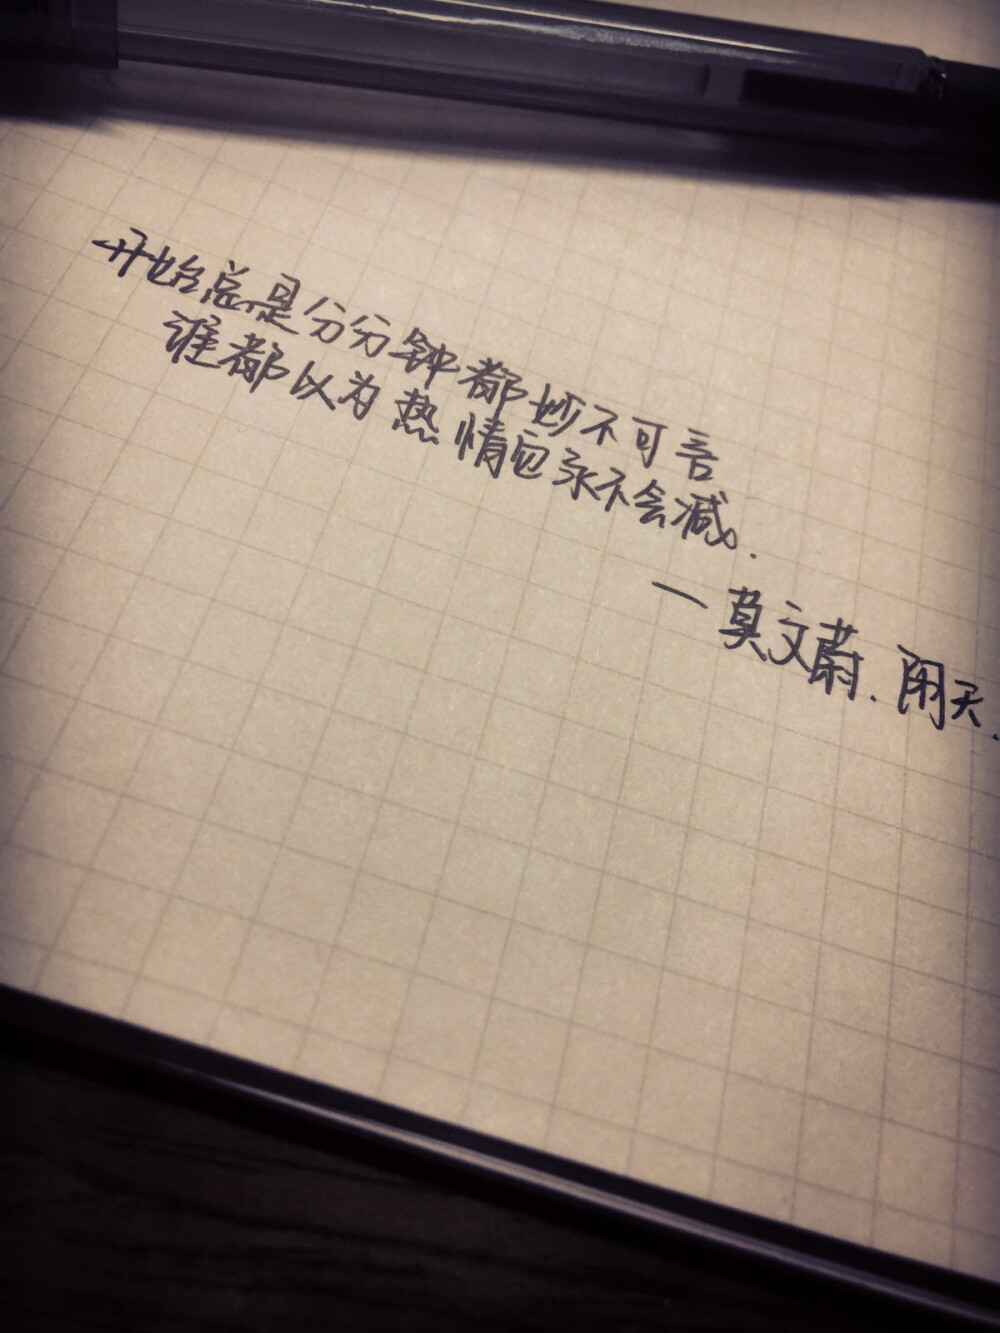 开始总是分分钟都妙不可言
谁都以为热情它永不会减。.
一莫文蔚.闭天.